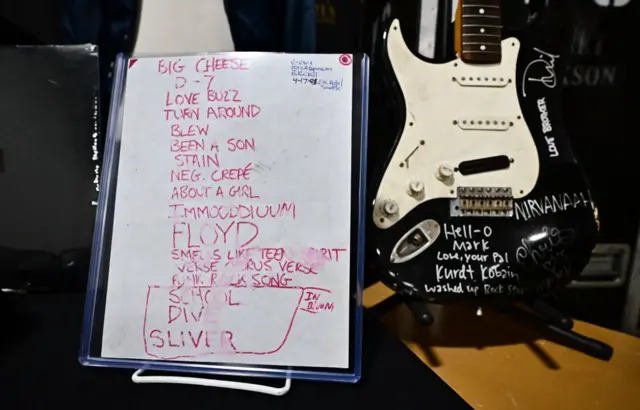 BIG CHEESE
D-7
LOVE BUZZ
TURN AROUND
BLEW
BEEN A SON
STAIN
NEG. CREPÉ
ABOUT A GIRL
IMMOODDIUUM
FLOYD
SMELLS LIKE TEEN SPIRIT
VERSE CHORUS VERSE
PUNK ROCK SONG
SCHOOL
DIVE
SLIVER
IN BLOOM
4-17-91
LOVE
NIRVANAAH
Hell-o
Mark
Love, your Pal
Kurdt Kobain
washed up Rock Star
KSON